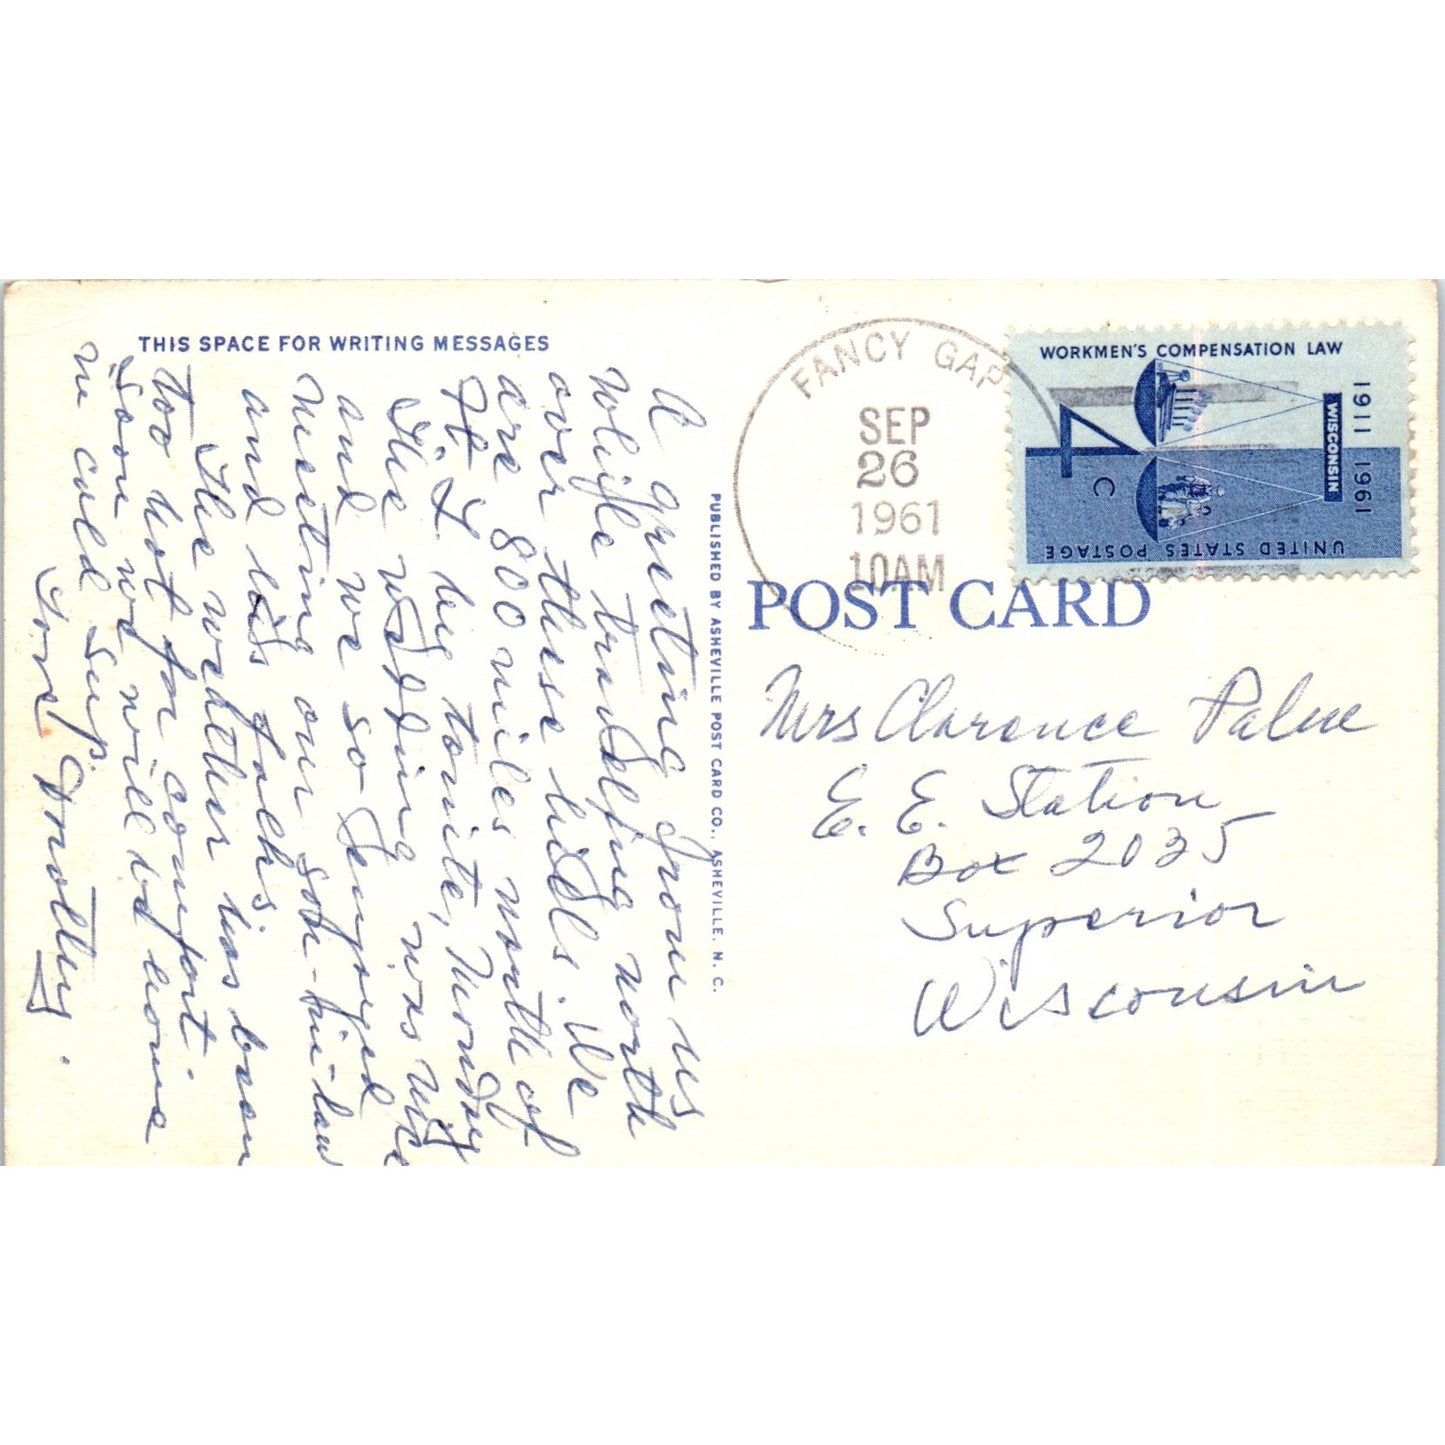 THIS SPACE FOR WRITING MESSAGES
A greeting from us
while traveling north
over these hills. We
are 800 miles north of
Ft. L. by tonite, Monday
The wedding was nice
and we so enjoyed
meeting our son-in-law
and his folks
The weather has been
too hot for comfort.
Soon we will be home
in cold Sup.
Love, Dorothy.
PUBLISHED BY ASHEVILLE POST CARD CO., ASHEVILLE, N. C.
FANCY GAP
SEP
26
1961
10AM
WORKMEN'S COMPENSATION LAW
1911 1961
WISCONSIN
4c
UNITED STATES POSTAGE
POST CARD
Mrs Clarence
E. E. Station
Box 2035
Superior
Wisconsin